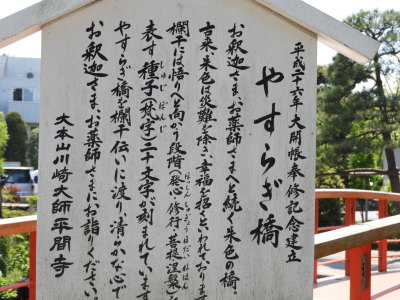 平成二十六年 大開帳奉修記念建立
やすらぎ橋
お釈迦さま、お薬師さまへと続く朱色の橋。
古来、朱色は災難を除き、幸福を招くといわれております。
欄干には悟りへと向かう段階(発心・修行・菩提・涅槃)を
表す種子(梵字)二十文字が刻まれています。
やすらぎ橋を欄干伝いに渡り清らかな心で
お釈迦さま、お薬師さまにお詣りください。
大本山川崎大師平間寺